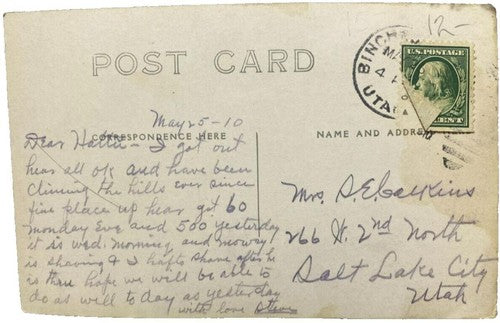 12-
POST CARD
U.S. POSTAGE
CENT
BINGHAM
MAY
4 P
UTAH
May 25-10
CORRESPONDENCE HERE
NAME AND ADDRESS
Dear Hattie - I got out
hear all ok and have been
climing the hills ever since
fine place up hear got 60
monday eve and 500 yesterday
it is wed. morning and mowry
is shaving & I hafto shave after he
is thru hope we will be able to
do as will to day as yesterday
with love Steve
Mrs. S.E. Calkins
266 W. 2nd North
Salt Lake City
Utah